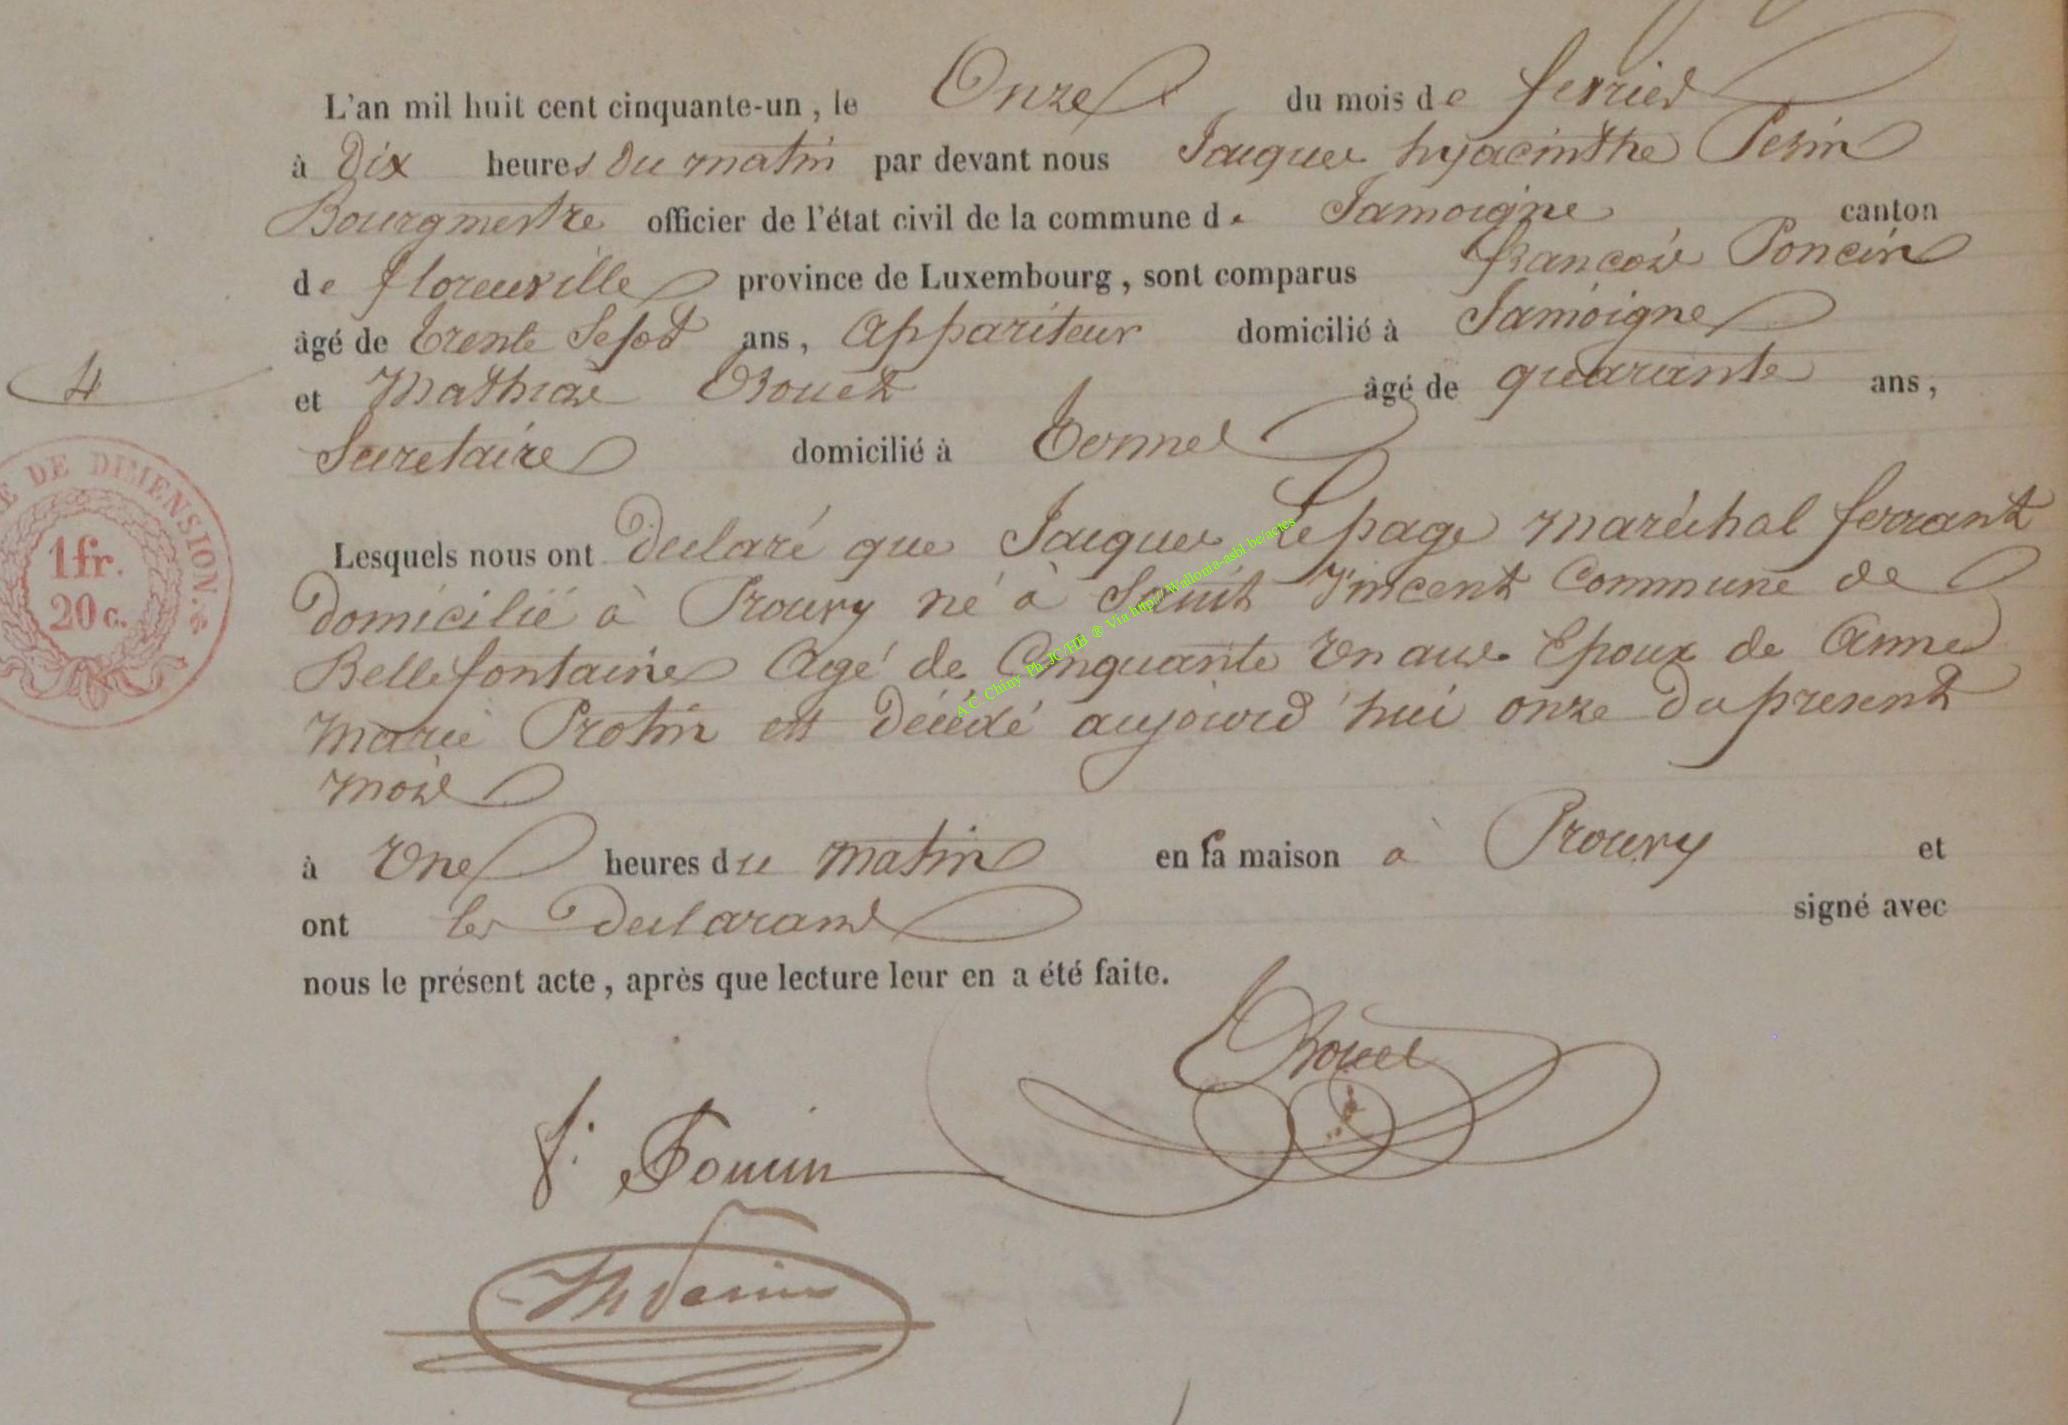 L'an mil huit cent cinquante-un, le Onze du mois de fevrier
à Dix heures du matin par devant nous Jacques hyacinthe Perin
Bourgmestre officier de l'état civil de la commune de Jamoigne canton
de florenville province de Luxembourg, sont comparus françois Poncin
âgé de trente Sept ans, Appariteur domicilié à Jamoigne
et Mathias Rouet âgé de quarante ans,
4
Secretaire domicilié à Termes
E DE DIMENSION.
1 fr.
20 c.
Lesquels nous ont declaré que Jacques Lepage maréchal ferrant
domicilié à Prouvy né à Saint Vincent Commune de
Bellefontaine Agé de Cinquante Un ans Epoux de Anne
Marie Protin est décédé aujourd'hui onze du present
mois
à Une heures du matin en sa maison à Prouvy et
ont les declarans signé avec
nous le présent acte, après que lecture leur en a été faite.
Rouet
f. Poncin
JhPerin
A C Chiny Ph.JC/HB ® Via http://Wallonia-asbl.be/actes